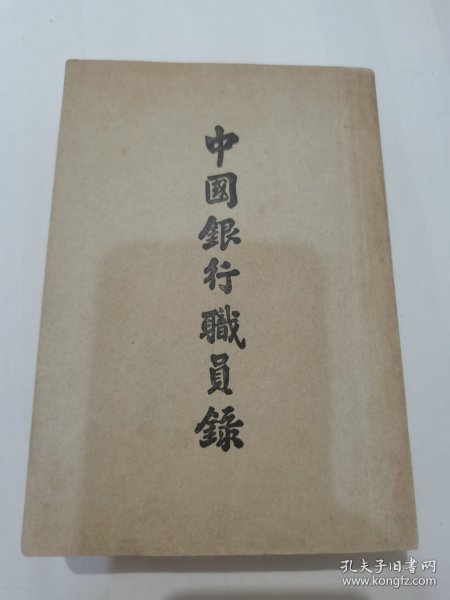 中國銀行職員錄
孔夫子旧书网
www.kongfz.com